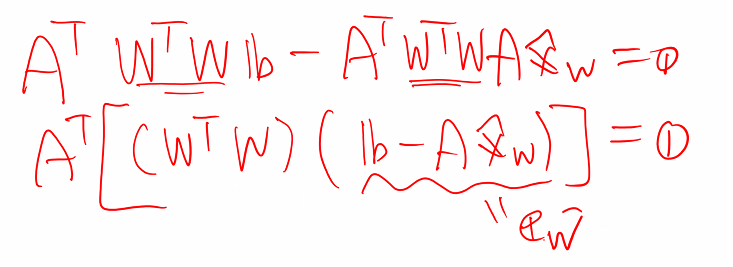 Aᵀ WᵀW 𝕓 − Aᵀ WᵀW A x̂_w = 𝟘
Aᵀ [ (WᵀW) ( 𝕓 − A x̂_w ) ] = 𝟘
" e_w